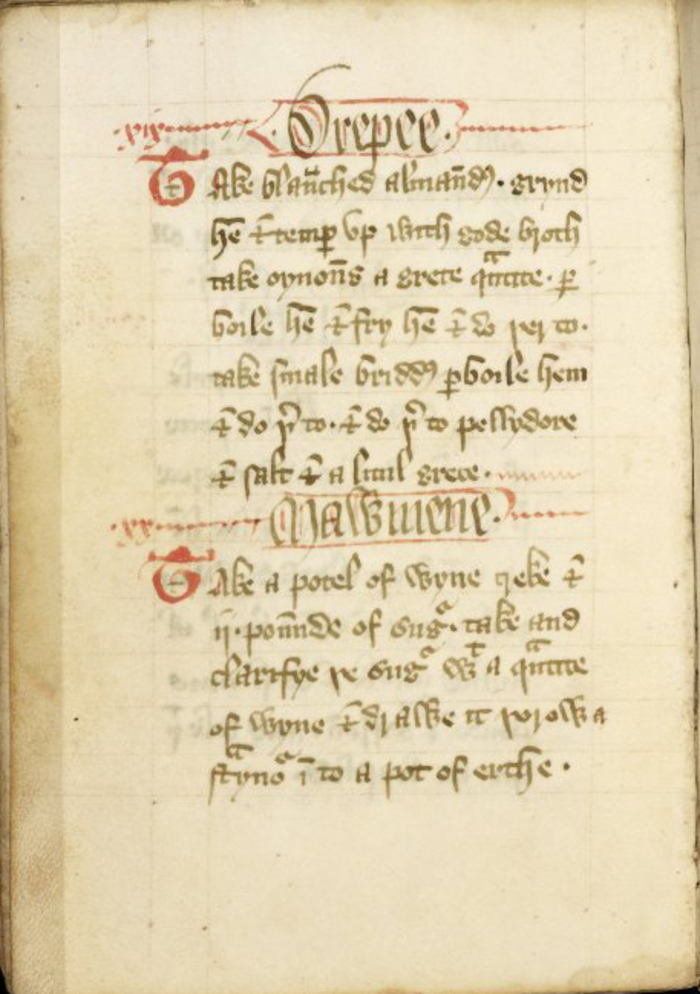 .xix. Drepee.
Take blanched almandes. grynd
hē ⁊ temꝑ vp with gode broth
take oynons a grete qᵃntite. ꝑ
boile hē ⁊ fry hē ⁊ do þer to.
take smale briddes ꝑboile hem
⁊ do þ to. ⁊ do þ to pellydore
⁊ salt ⁊ a litul grece.
.xx. Mawmene.
Take a potel of wyne greke ⁊
ij. pounde of sugᵃ. take and
clarifye þe sugᵃ wᵗ a qᵃntite
of wyne ⁊ drawe it þorow a
stᵃynoᵃ ī to a pot of erthe.